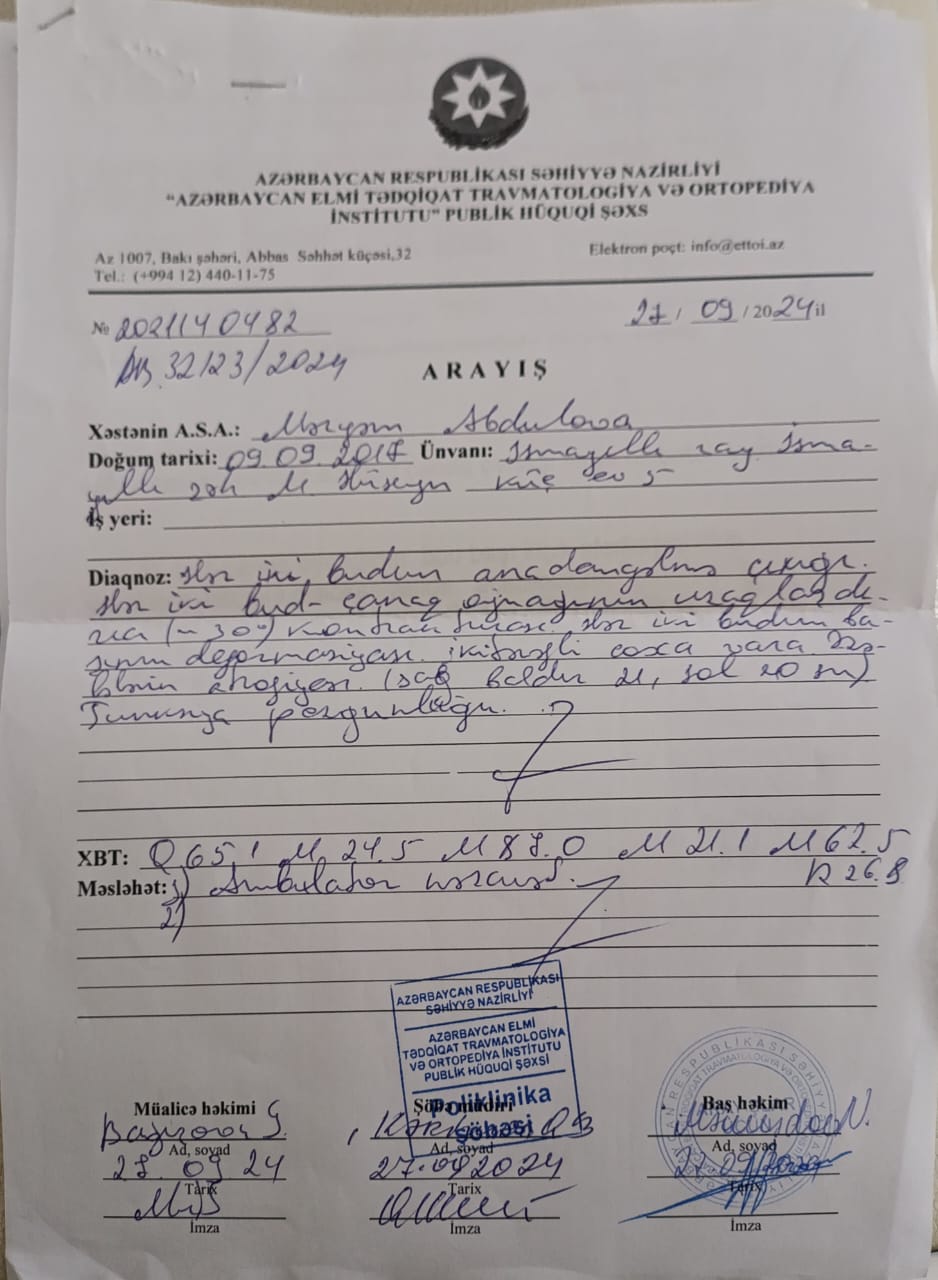 AZƏRBAYCAN RESPUBLİKASI SƏHİYYƏ NAZİRLİYİ
“AZƏRBAYCAN ELMİ TƏDQİQAT TRAVMATOLOGİYA VƏ ORTOPEDİYA
İNSTİTUTU” PUBLİK HÜQUQİ ŞƏXS
Az 1007, Bakı şəhəri, Abbas Səhhət küçəsi,32
Elektron poçt: info@ettoi.az
Tel.: (+994 12) 440-11-75
№ 2021140482
27 / 09 / 2024 il
32/23/2024
ARAYIŞ
Xəstənin A.S.A.: Məryəm Abdulova
Doğum tarixi: 09.09.2017 Ünvanı: İsmayıllı ray İsma-
yıllı M Hüseyn küç ev 5
İş yeri:
Diaqnoz: Hər iki budun anadangəlmə çıxığı.
Hər iki bud-çanaq oynağının uzaqlaşdı-
rıcı (~30°) kontrakturası. Hər iki budun ba-
şının deformasiyası. ikitərəfli coxa vara. Əzə-
lələrin atrofiyası. (sağ baldır 21, sol 20 sm)
Funksiya pozgunluğu.
XBT: Q 65.1 M 24.5 M 87.0 M 21.1 M 62.5
R 26.8
Məsləhət: 1) Ambulator nəzarət.
2)
AZƏRBAYCAN RESPUBLİKASI
SƏHİYYƏ NAZİRLİYİ
AZƏRBAYCAN ELMİ
TƏDQİQAT TRAVMATOLOGİYA
VƏ ORTOPEDİYA İNSTİTUTU
PUBLİK HÜQUQİ ŞƏXSİ
Poliklinika
şöbəsi
Müalicə həkimi
Şöbə müdiri
Baş həkim
Ad, soyad
Ad, soyad
Ad, soyad
27.09.2024
Tarix
Tarix
Tarix
İmza
İmza
İmza